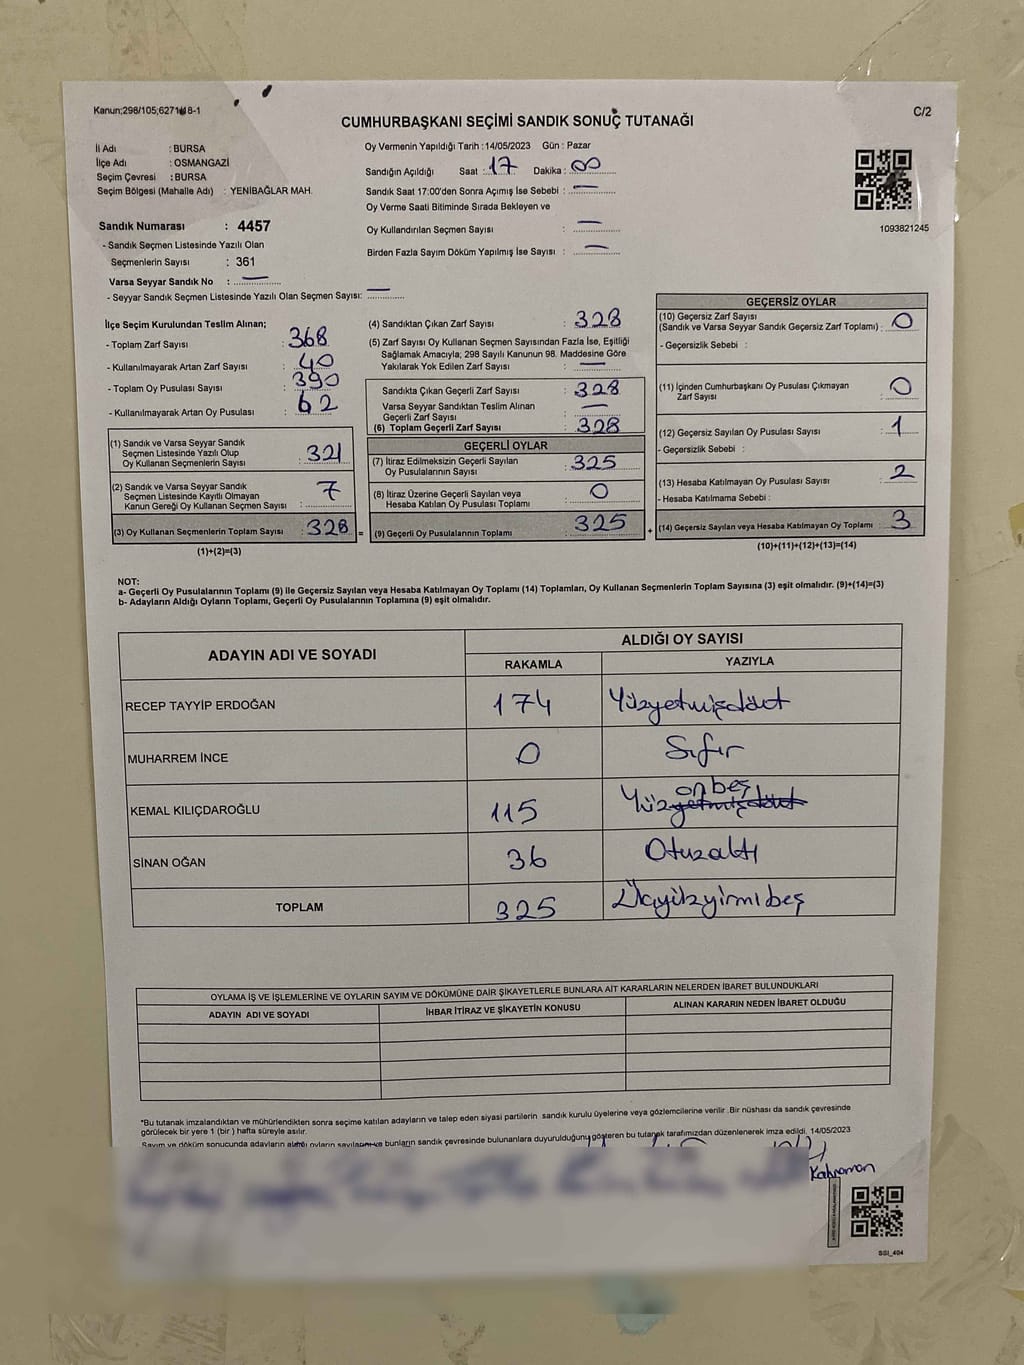 Kanun;298/105;6271 8-1
C/2
CUMHURBAŞKANI SEÇİMİ SANDIK SONUÇ TUTANAĞI
İl Adı : BURSA
İlçe Adı : OSMANGAZİ
Seçim Çevresi : BURSA
Seçim Bölgesi (Mahalle Adı) : YENİBAĞLAR MAH.
Oy Vermenin Yapıldığı Tarih :14/05/2023 Gün : Pazar
Sandığın Açıldığı Saat : 17 Dakika : 00
Sandık Saat 17:00'den Sonra Açımış İse Sebebi : —
Oy Verme Saati Bitiminde Sırada Bekleyen ve
Oy Kullandırılan Seçmen Sayısı : —
Birden Fazla Sayım Döküm Yapılmış İse Sayısı : —
1093821245
Sandık Numarası : 4457
- Sandık Seçmen Listesinde Yazılı Olan
Seçmenlerin Sayısı : 361
Varsa Seyyar Sandık No : —
- Seyyar Sandık Seçmen Listesinde Yazılı Olan Seçmen Sayısı: —
İlçe Seçim Kurulundan Teslim Alınan;
- Toplam Zarf Sayısı : 368
- Kullanılmayarak Artan Zarf Sayısı : 40
- Toplam Oy Pusulası Sayısı : 390
- Kullanılmayarak Artan Oy Pusulası : 62
(1) Sandık ve Varsa Seyyar Sandık
Seçmen Listesinde Yazılı Olup
Oy Kullanan Seçmenlerin Sayısı : 321
(2) Sandık ve Varsa Seyyar Sandık
Seçmen Listesinde Kayıtlı Olmayan
Kanun Gereği Oy Kullanan Seçmen Sayısı : 7
(3) Oy Kullanan Seçmenlerin Toplam Sayısı : 328 =
(1)+(2)=(3)
(4) Sandıktan Çıkan Zarf Sayısı : 328
(5) Zarf Sayısı Oy Kullanan Seçmen Sayısından Fazla İse, Eşitliği
Sağlamak Amacıyla; 298 Sayılı Kanunun 98. Maddesine Göre
Yakılarak Yok Edilen Zarf Sayısı : —
Sandıkta Çıkan Geçerli Zarf Sayısı : 328
Varsa Seyyar Sandıktan Teslim Alınan
Geçerli Zarf Sayısı : —
(6) Toplam Geçerli Zarf Sayısı : 328
GEÇERLİ OYLAR
(7) İtiraz Edilmeksizin Geçerli Sayılan
Oy Pusulalarının Sayısı : 325
(8) İtiraz Üzerine Geçerli Sayılan veya
Hesaba Katılan Oy Pusulası Toplamı : 0
(9) Geçerli Oy Pusulalarının Toplamı : 325 +
GEÇERSİZ OYLAR
(10) Geçersiz Zarf Sayısı
(Sandık ve Varsa Seyyar Sandık Geçersiz Zarf Toplamı) : 0
- Geçersizlik Sebebi :
(11) İçinden Cumhurbaşkanı Oy Pusulası Çıkmayan
Zarf Sayısı : 0
(12) Geçersiz Sayılan Oy Pusulası Sayısı : 1
- Geçersizlik Sebebi :
(13) Hesaba Katılmayan Oy Pusulası Sayısı : 2
- Hesaba Katılmama Sebebi :
(14) Geçersiz Sayılan veya Hesaba Katılmayan Oy Toplamı : 3
(10)+(11)+(12)+(13)=(14)
NOT:
a- Geçerli Oy Pusulalarının Toplamı (9) ile Geçersiz Sayılan veya Hesaba Katılmayan Oy Toplamı (14) Toplamları, Oy Kullanan Seçmenlerin Toplam Sayısına (3) eşit olmalıdır. (9)+(14)=(3)
b- Adayların Aldığı Oyların Toplamı, Geçerli Oy Pusulalarının Toplamına (9) eşit olmalıdır.
ADAYIN ADI VE SOYADI ALDIĞI OY SAYISI
RAKAMLA YAZIYLA
RECEP TAYYİP ERDOĞAN 174 Yüzyetmişdört
MUHARREM İNCE 0 Sıfır
KEMAL KILIÇDAROĞLU 115 Yüzyetmişdört onbeş
SİNAN OĞAN 36 Otuzaltı
TOPLAM 325 Üçyüzyirmibeş
OYLAMA İŞ VE İŞLEMLERİNE VE OYLARIN SAYIM VE DÖKÜMÜNE DAİR ŞİKAYETLERLE BUNLARA AİT KARARLARIN NELERDEN İBARET BULUNDUKLARI
ADAYIN ADI VE SOYADI İHBAR İTİRAZ VE ŞİKAYETİN KONUSU ALINAN KARARIN NEDEN İBARET OLDUĞU
"Bu tutanak imzalandıktan ve mühürlendikten sonra seçime katılan adayların ve talep eden siyasi partilerin sandık kurulu üyelerine veya gözlemcilerine verilir .Bir nüshası da sandık çevresinde
görülecek bir yere 1 (bir ) hafta süreyle asılır.
Sayım ve döküm sonucunda adayların aldığı oyların sayılarınca bunların sandık çevresinde bulunanlara duyurulduğunu gösteren bu tutanak tarafımızdan düzenlenerek imza edildi. 14/05/2023
Kahraman
SSİ_404